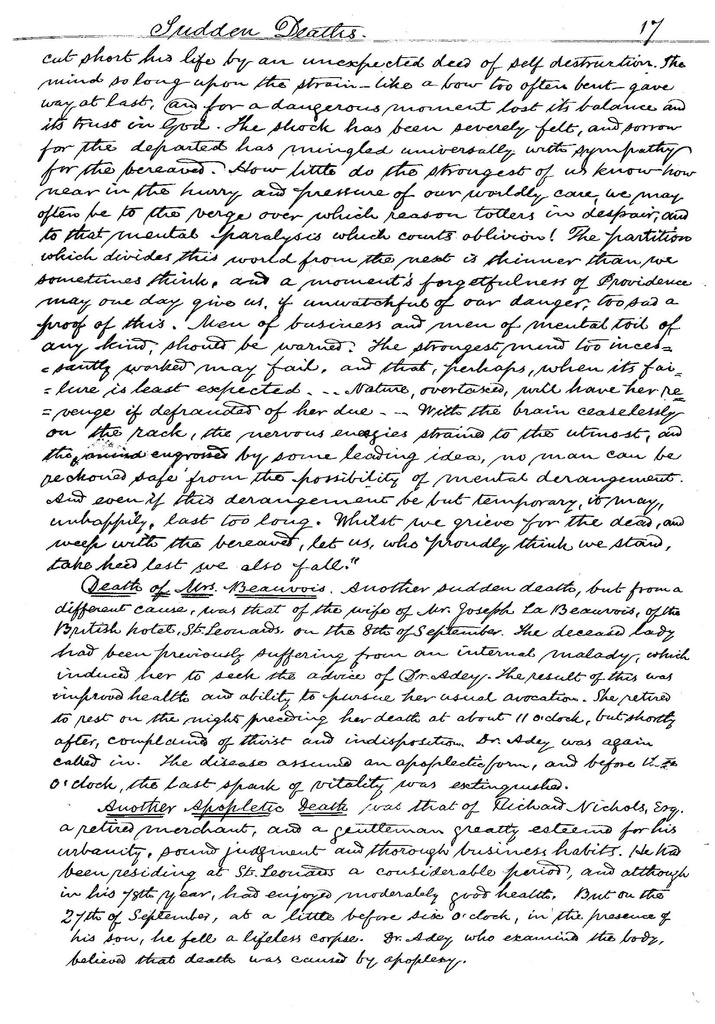 Sudden Deaths. 17
cut short his life by an unexpected deed of self destruction. The
mind so long upon the strain – like a bow too often bent – gave
way at last, and for a dangerous moment lost its balance and
its trust in God. The shock has been severely felt, and sorrow
for the departed has mingled universally with sympathy
for the bereaved. How little do the strongest of us know how
near in the hurry and pressure of our worldly care, we may
often be to the verge over which reason totters in despair, and
to that mental paralysis which courts oblivion! The partition
which divides this world from the next is thinner than we
sometimes think, and a moment's forgetfulness of Providence
may one day give us, if unwatchful of our danger, too sad a
proof of this. Men of business and men of mental toil of
any kind, should be warned. The strongest mind too inces=
=santly worked may fail, and that, perhaps, when its fai=
=lure is least expected - - - Nature, overtaxed, will have her re=
=venge if defrauded of her due - - With the brain ceaselessly
on the rack, the nervous energies strained to the utmost, and
the mind engrossed by some leading idea, no man can be
reckoned safe from the possibility of mental derangement.
And even if this derangement be but temporary, it may,
unhappily, last too long. Whilst we grieve for the dead, and
weep with the bereaved, let us, who proudly think we stand,
take heed lest we also fall."
Death of Mrs. Beauvois. Another sudden death, but from a
different cause, was that of the wife of Mr. Joseph La Beauvois, of the
British hotel, St. Leonards, on the 8th of September. The deceased lady
had been previously suffering from an internal malady, which
induced her to seek the advice of Dr. Adey. The result of this was
improved health and ability to pursue her usual avocation. She retired
to rest on the night preceding her death at about 11 o'clock, but shortly
after, complained of thirst and indisposition. Dr. Adey was again
called in. The disease assumed an apoplectic form, and before
o'clock, the last spark of vitality was extinguished.
Another Apopletic Death was that of Richard Nichols, Esq.
a retired merchant, and a gentleman greatly esteemed for his
urbanity, sound judgment and thorough business habits. He had
been residing at St. Leonards a considerable period, and although
in his 78th year, had enjoyed moderately good health. But on the
27th of September, at a little before six o'clock, in the presence of
his son, he fell a lifeless corpse. Dr. Adey who examined the body,
believed that death was caused by apoplexy.